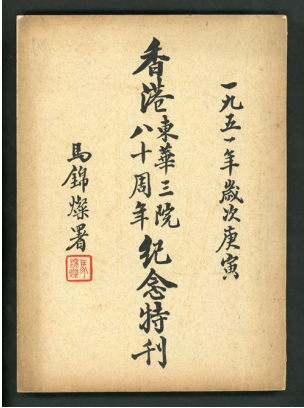 一九五一年歲次庚寅
香港東華三院八十周年紀念特刊
馬錦燦署